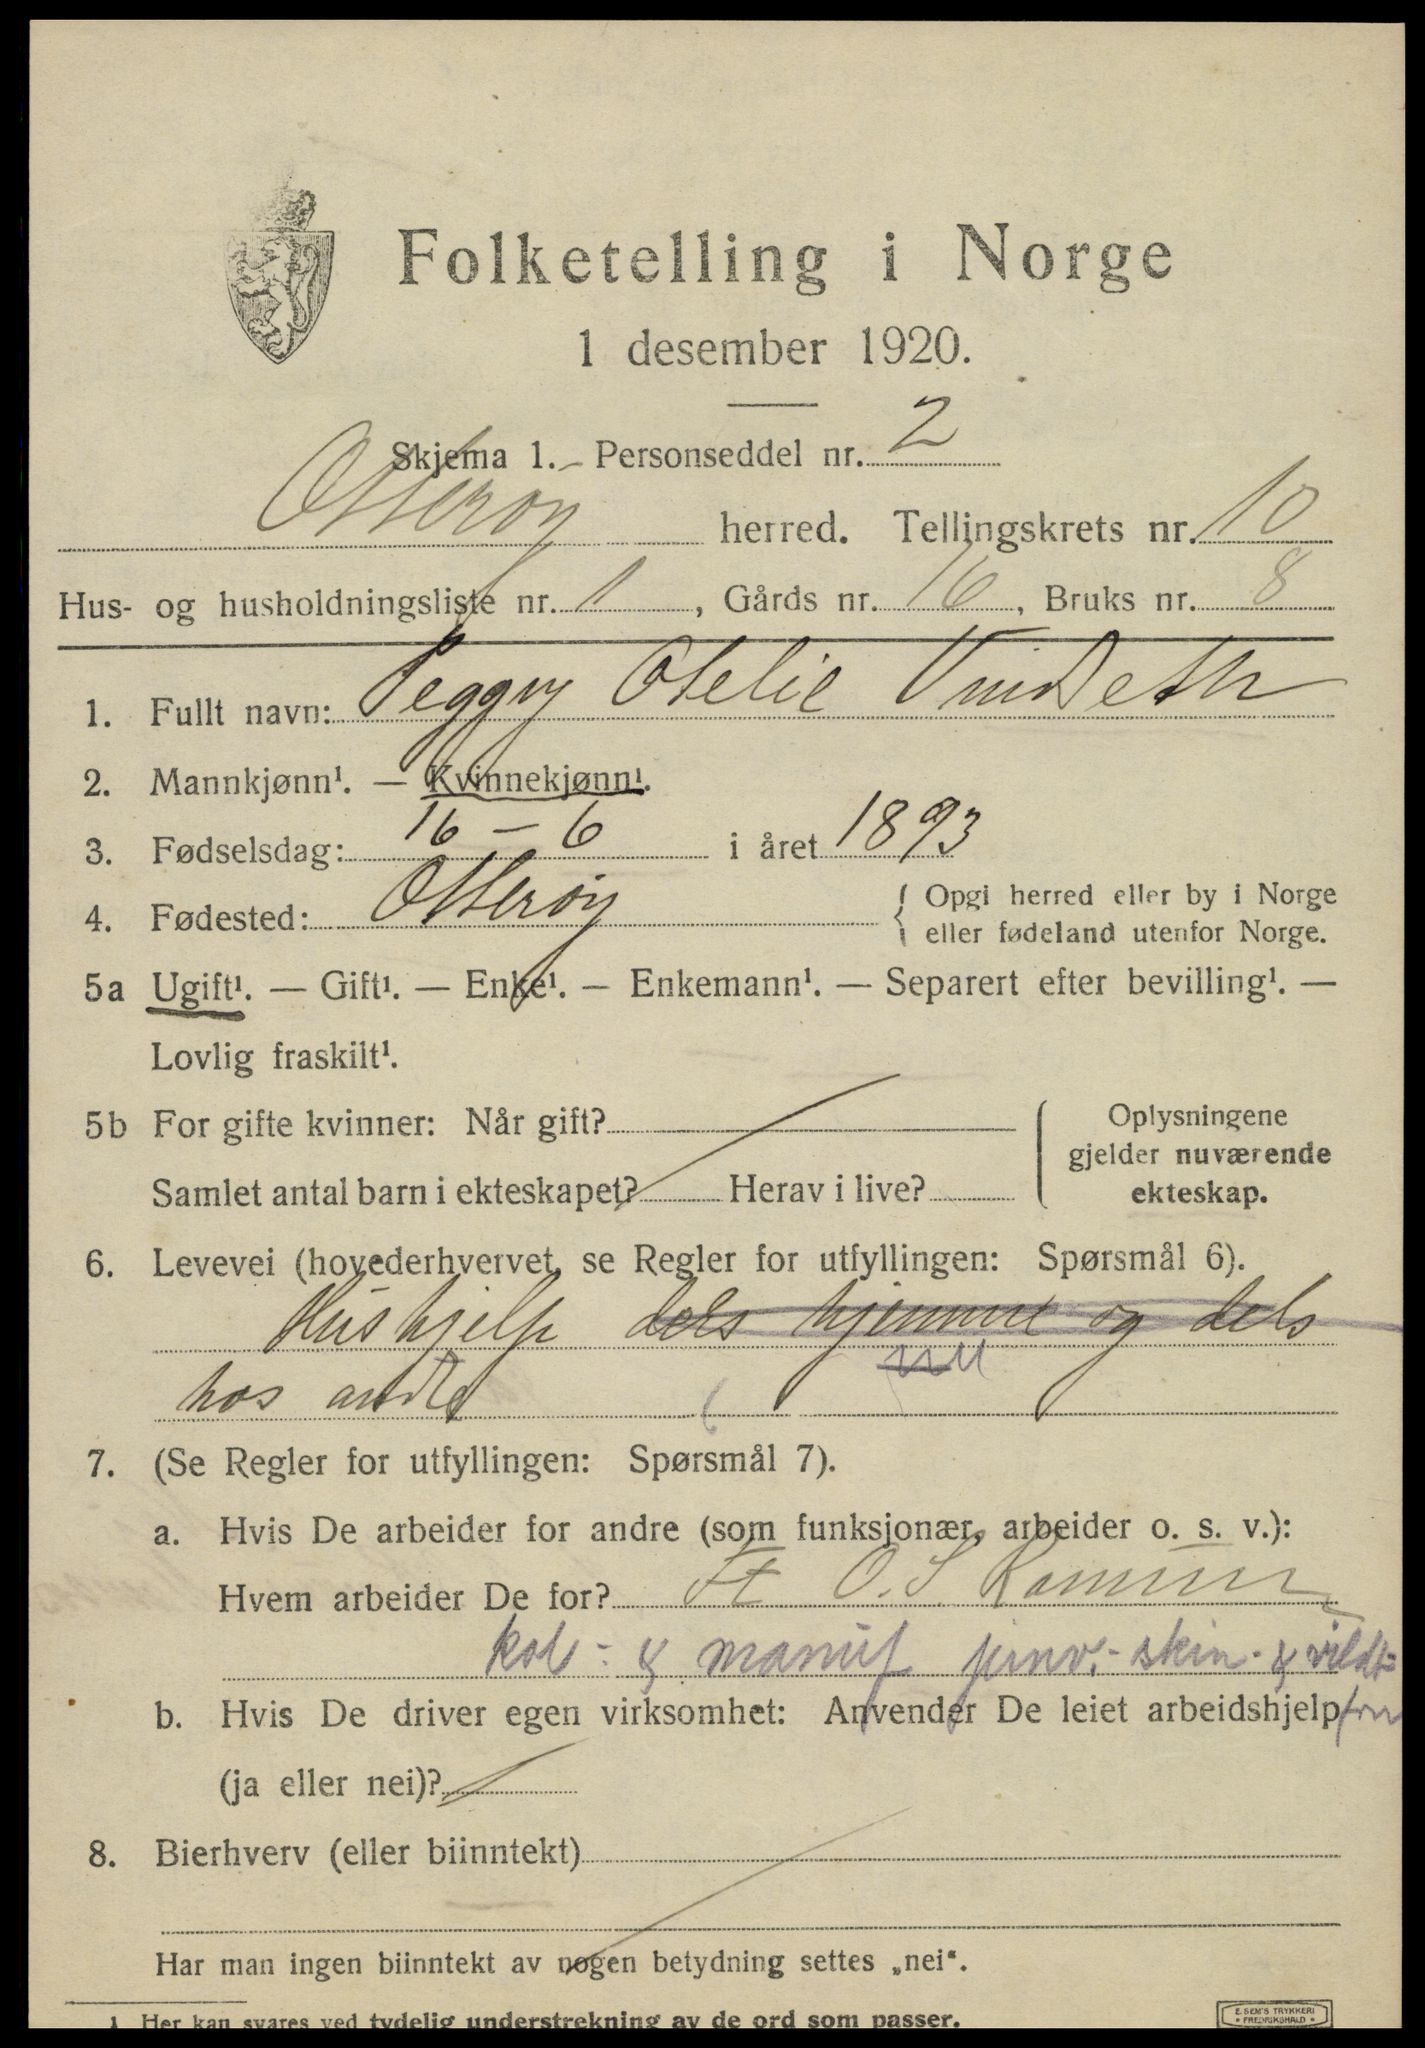 Folketelling i Norge
1 desember 1920.
Skjema 1. — Personseddel nr. 2
Otterøy herred. Tellingskrets nr. 10
Hus- og husholdningsliste nr. 1, Gårds nr. 16, Bruks nr. 8
1. Fullt navn: Peggy Otelie
2. Mannkjønn¹. — Kvinnekjønn¹.
3. Fødselsdag: 16 – 6 i året 1893
4. Fødested: Otterøy { Opgi herred eller by i Norge
eller fødeland utenfor Norge.
5a Ugift¹. — Gift¹. — Enke¹. — Enkemann¹. — Separert efter bevilling¹. —
Lovlig fraskilt¹.
5b For gifte kvinner: Når gift?
Samlet antal barn i ekteskapet? Herav i live?
Oplysningene
gjelder nuværende
ekteskap.
6. Levevei (hovederhvervet, se Regler for utfyllingen: Spørsmål 6).
Hushjelp dels hjemme og dels
hos
7. (Se Regler for utfyllingen: Spørsmål 7).
a. Hvis De arbeider for andre (som funksjonær, arbeider o. s. v.):
Hvem arbeider De for? O. S.
kol- & manuf skin- & vildt-
b. Hvis De driver egen virksomhet: Anvender De leiet arbeidshjelp
(ja eller nei)?
8. Bierhverv (eller biinntekt)
Har man ingen biinntekt av nogen betydning settes „nei“.
1 Her kan svares ved tydelig understrekning av de ord som passer.
E. SEM'S TRYKKERI
• FREDRIKSHALD •